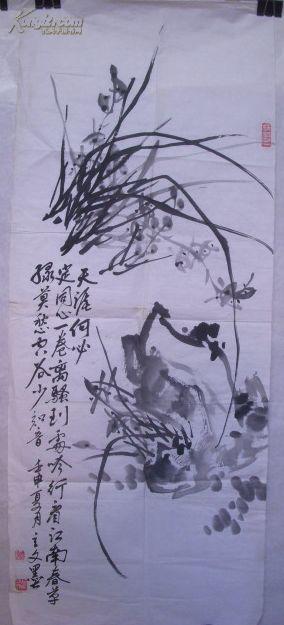 天涯何必
定同心一卷离骚到处吟行看江南春草
绿莫愁空谷少知音 壬申夏月 立文墨
Kongfz.com